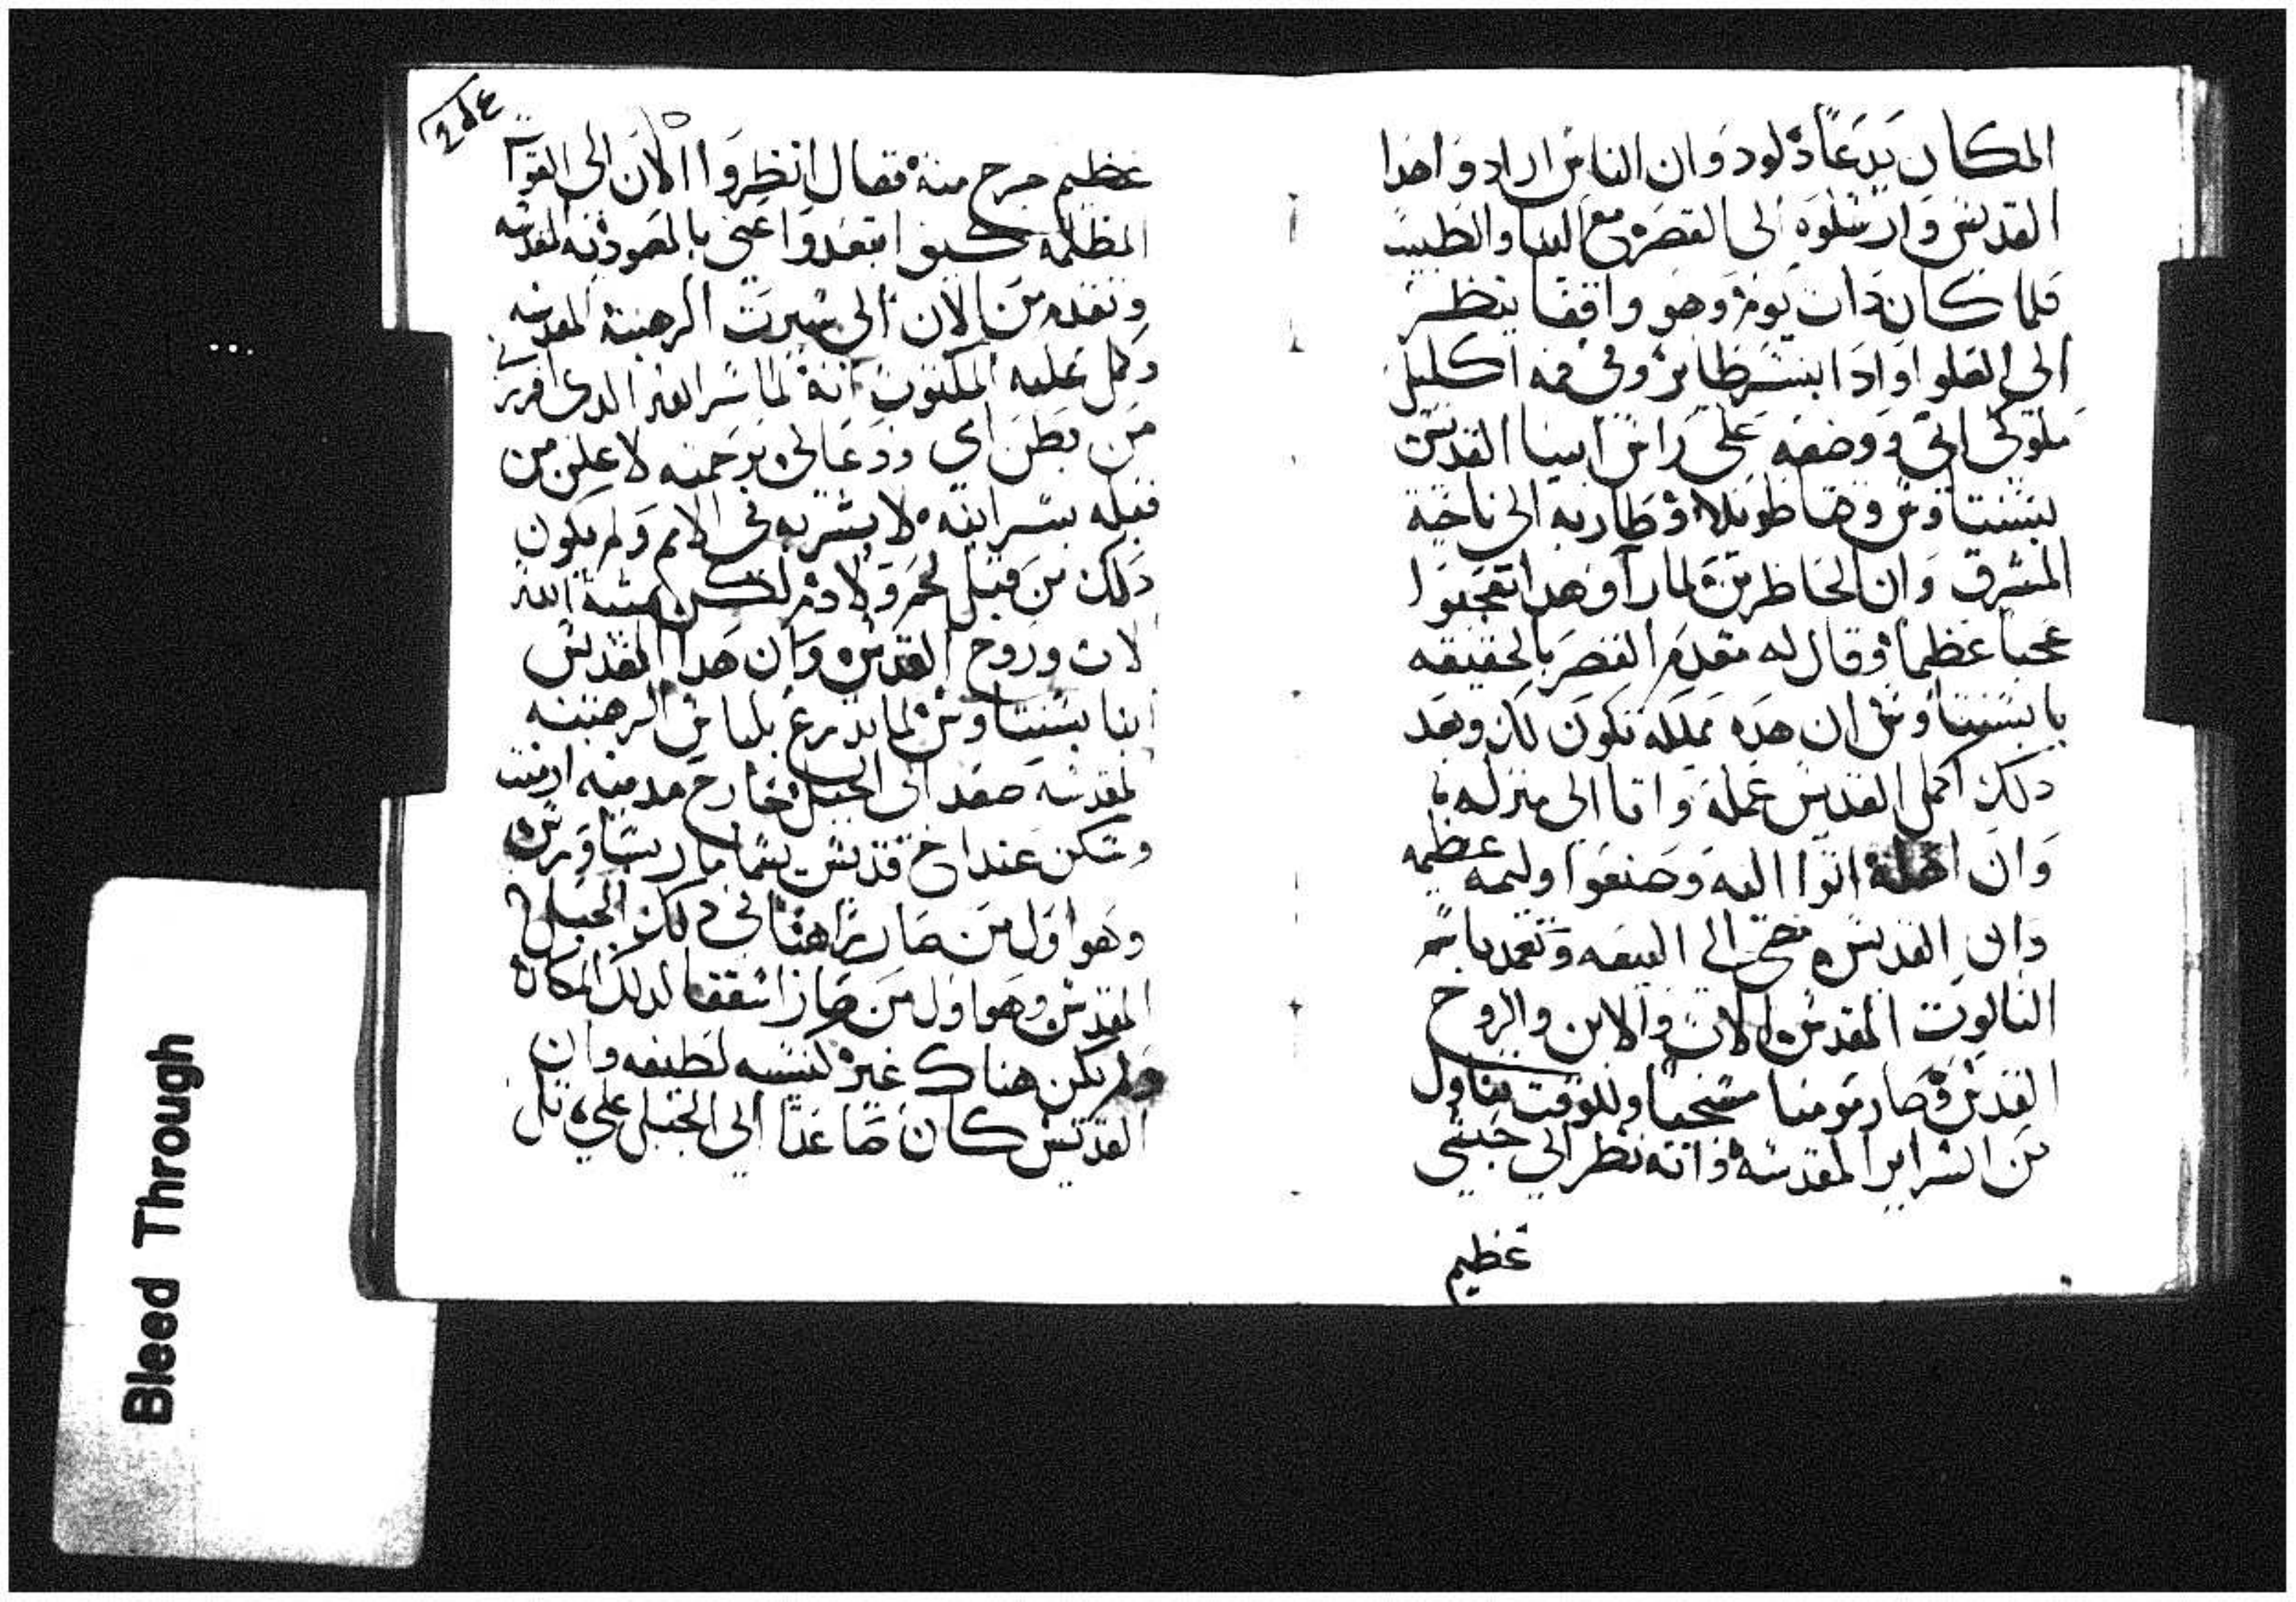 المكان يدعا دلود وان الناس ارادو اخدا
القديس وارسلوه الى القصر مع البنا والطبيب
فلما كان دات يوم وهو واقفا ينظر
الى العلو اوادا بنسر طاير وفي فمه اكليل
ملوكي اتى ووضعه على راس ابينا القديس
بسنتاوس وحا طويلا وطار به الى ناحية
المشرق وان الحاظرين لما راو هدا تعجبوا
عجبا عظما وقال له مقدم القصر بالحقيقه
يا بسنتاوس ان هده مملكه تكون لك وبعد
دلك اكمل القديس عمله واتا الى منزله
وان اهله اتوا اليه وصنعوا وليمه عظيمه
وان القديس مضى الى البيعه وتعمد باسم
التالوت المقدس الاب والابن والروح
القدس وصار مومنا مسيحيا وللوقت تناول
من السراير المقدسه وانه نظر الي جيش
عظيم
عظيم خرج منه فقال انظروا الان الى القوا
المظلمه كيف ابتعدوا عني بالمعوديه المقدسه
وتقدم من الان الى سيرت الرهبنة المقدسه
وكمل عليه المكتوب انه لما سر الله الدى افرزني
من بطن امي ودعاني برحمته لاعلن من
قبله بسر ابنه لابشر به في الامم ولم يكون
دلك من قبل لحم ولا دم لكن بمشية الله
الاب وروح القدس وان هدا القديس
انبا بسنتاوس لما تدرع بلباس الرهبنه
المقدسه صعد الى الجبل خارج مدينه ارمنت
وسكن عند اخ قديس يسما
وهو اول من صار راهبا في دلك الجبل
المقدس وهو اول من صار اسقفا لدلك المكان
ولم يكن هناك غير كنيسه لطيفه وان
القديس كان صاعدا الي الجبل علي تل
Bleed Through